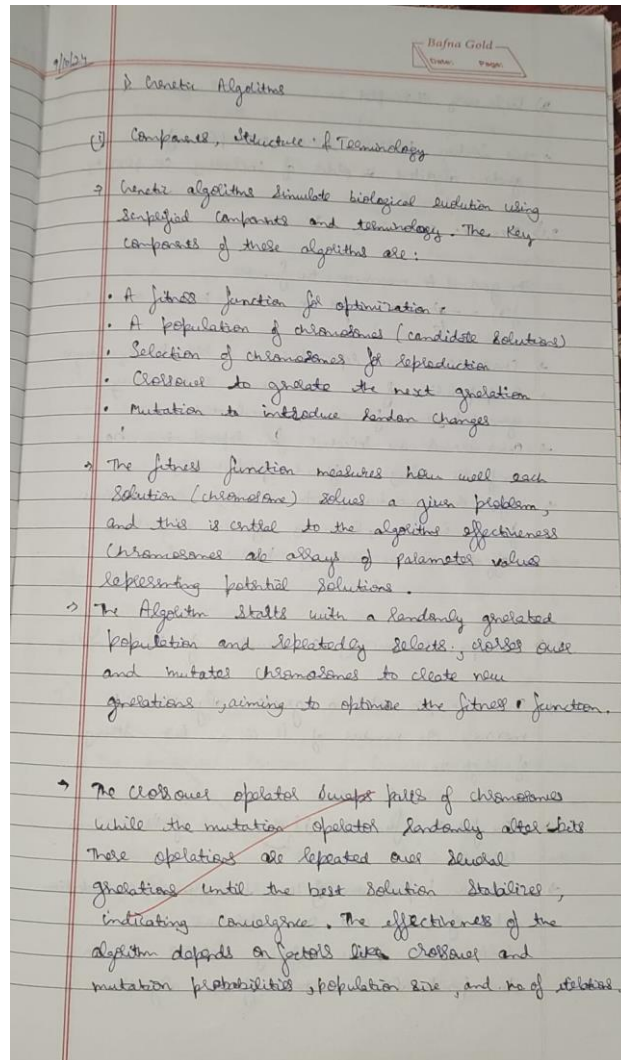 Bafna Gold
Date: Page:
9/10/24
1) Genetic Algorithms
(i) Components, Structure & Terminology
→ Genetic algorithms simulate biological evolution using
simplified components and terminology. The Key
components of these algorithms are:
• A fitness function for optimization.
• A population of chromosomes (candidate solutions)
• Selection of chromosomes for reproduction
• Crossover to generate the next generation
• Mutation to introduce random changes
→ The fitness function measures how well each
solution (chromosome) solves a given problem,
and this is central to the algorithms effectiveness
Chromosomes are arrays of parameter values
representing potential solutions.
→ The Algorithm starts with a randomly generated
population and repeatedly selects, crosses over
and mutates chromosomes to create new
generations, aiming to optimise the fitness function.
→ The crossover operator swaps parts of chromosomes
while the mutation operator randomly alter bits
These operations are repeated over several
generations until the best solution stabilizes,
indicating convergence. The effectiveness of the
algorithm depends on factors like crossover and
mutation probabilities, population size, and no of iterations.